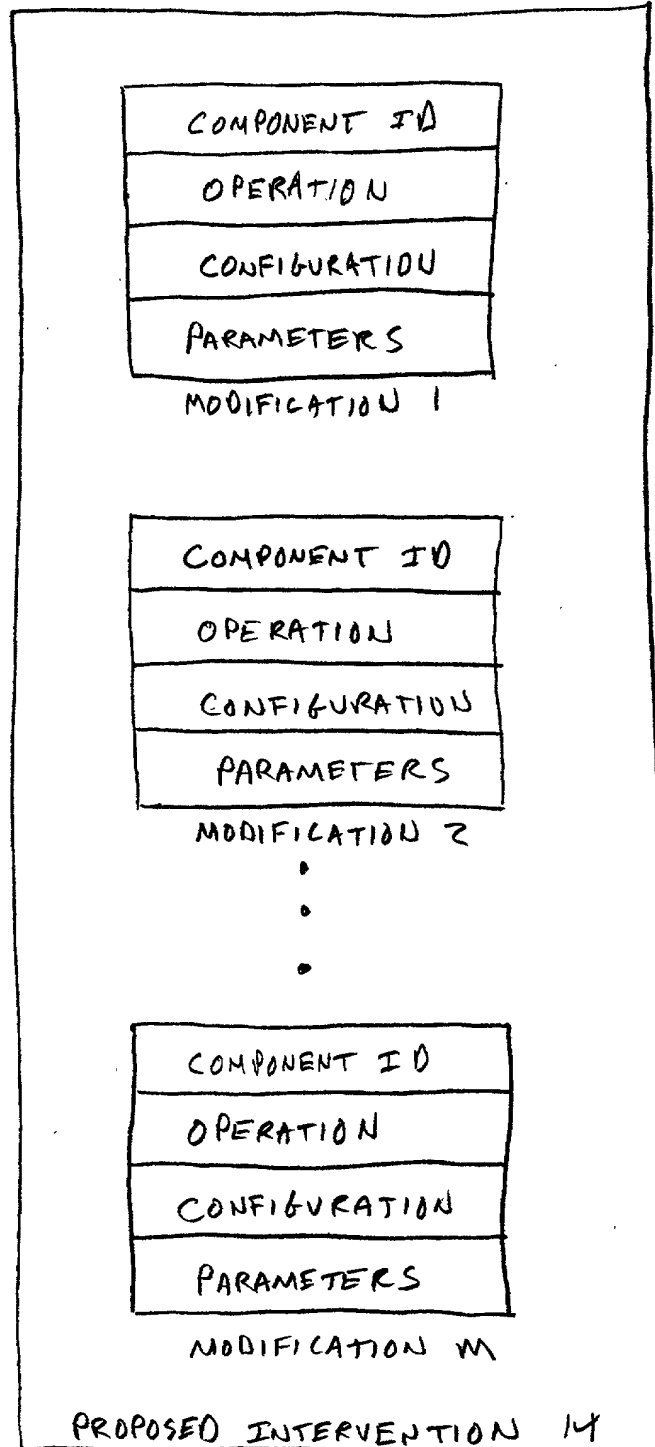 COMPONENT ID
OPERATION
CONFIGURATION
PARAMETERS
MODIFICATION 1
COMPONENT ID
OPERATION
CONFIGURATION
PARAMETERS
MODIFICATION 2
COMPONENT ID
OPERATION
CONFIGURATION
PARAMETERS
MODIFICATION M
PROPOSED INTERVENTION 14